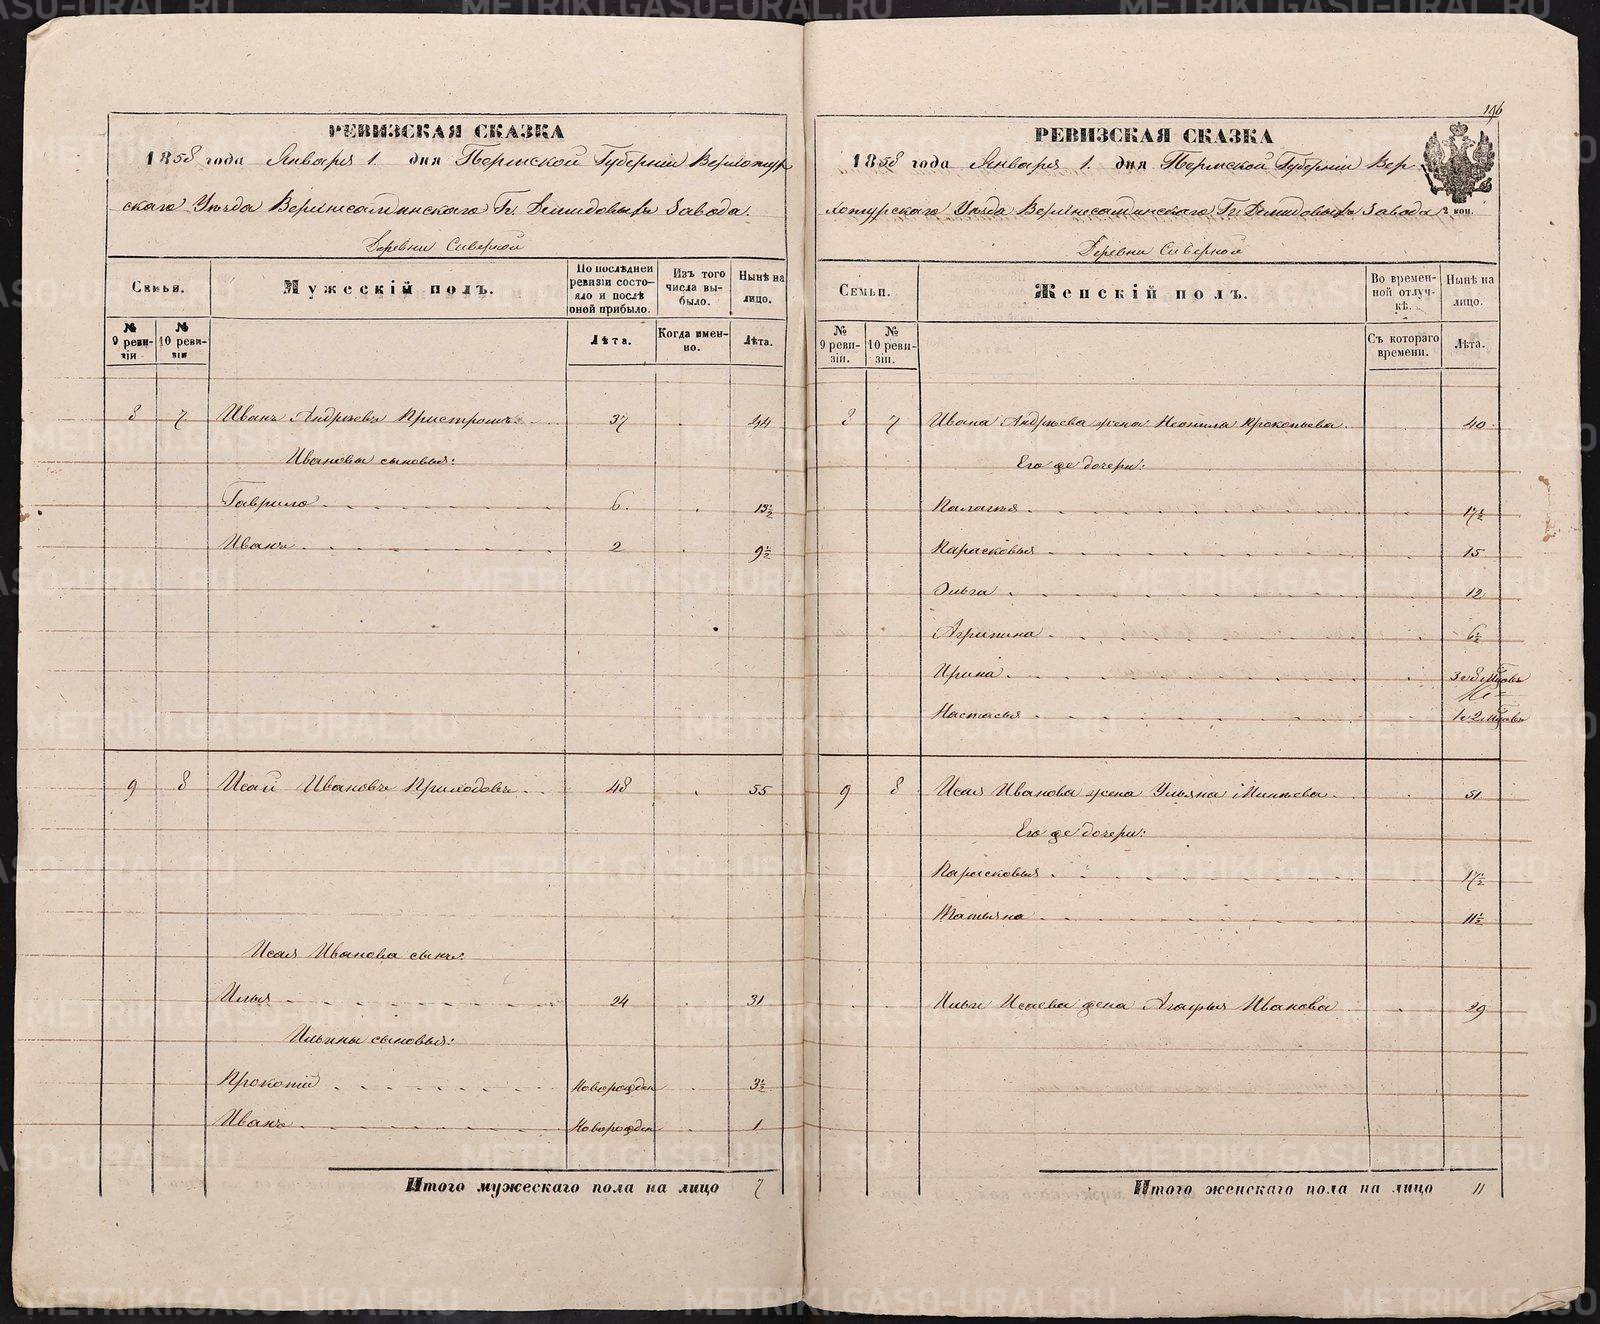 РЕВИЗСКАЯ СКАЗКА
1858 года Января 1. дня Пермской Губерніи Верхотур
скаго Уѣзда Верхнесалдинскаго Гг. Демидовыхъ Завода.
Деревни Сиверной
Семьи.
Мужескій полъ.
По послѣдней ревизіи состояло и послѣ оной прибыло.
Изъ того числа выбыло.
Нынѣ на лицо.
№ 9 ревизіи
№ 10 ревизіи
Лѣта.
Когда именно.
Лѣта.
8 7 Иванъ Андрѣевъ 37 44
Ивановы сыновья:
Гаврило 6. 13½
Иванъ 2 9½
9 8 Исай Ивановъ Приходовъ 48 55
Исая Иванова сынъ:
Илья 24 31
Ильины сыновья:
Прокопій Новорожден 3½
Иванъ Новорожден 1
Итого мужескаго пола на лицо 7
196
РЕВИЗСКАЯ СКАЗКА
1858 года Января 1. дня Пермской Губерніи Вер-
хотурскаго Уѣзда Верхнесалдинскаго Гг. Демидовыхъ Завода
2 коп.
Деревни Сиверной
Семьи.
Женскій полъ.
Во временной отлучкѣ.
Нынѣ на лицо.
№ 9 ревизіи.
№ 10 ревизіи.
Съ котораго времени.
Лѣта.
8 7 Ивана Андрѣева жена Неонила Прокопьева 40
Его же дочери:
Палагья 17½
Парасковья 15
Ольга 12
Агрипина 6½
Ирина
Настасья
9 8 Исая Иванова жена Ульяна Минѣева 51
Его же дочери:
Парасковья 17½
Татьяна 11½
Ильи Исаева жена Агафья Иванова 29
Итого женскаго пола на лицо 11
METRIKI.GASO-URAL.RU